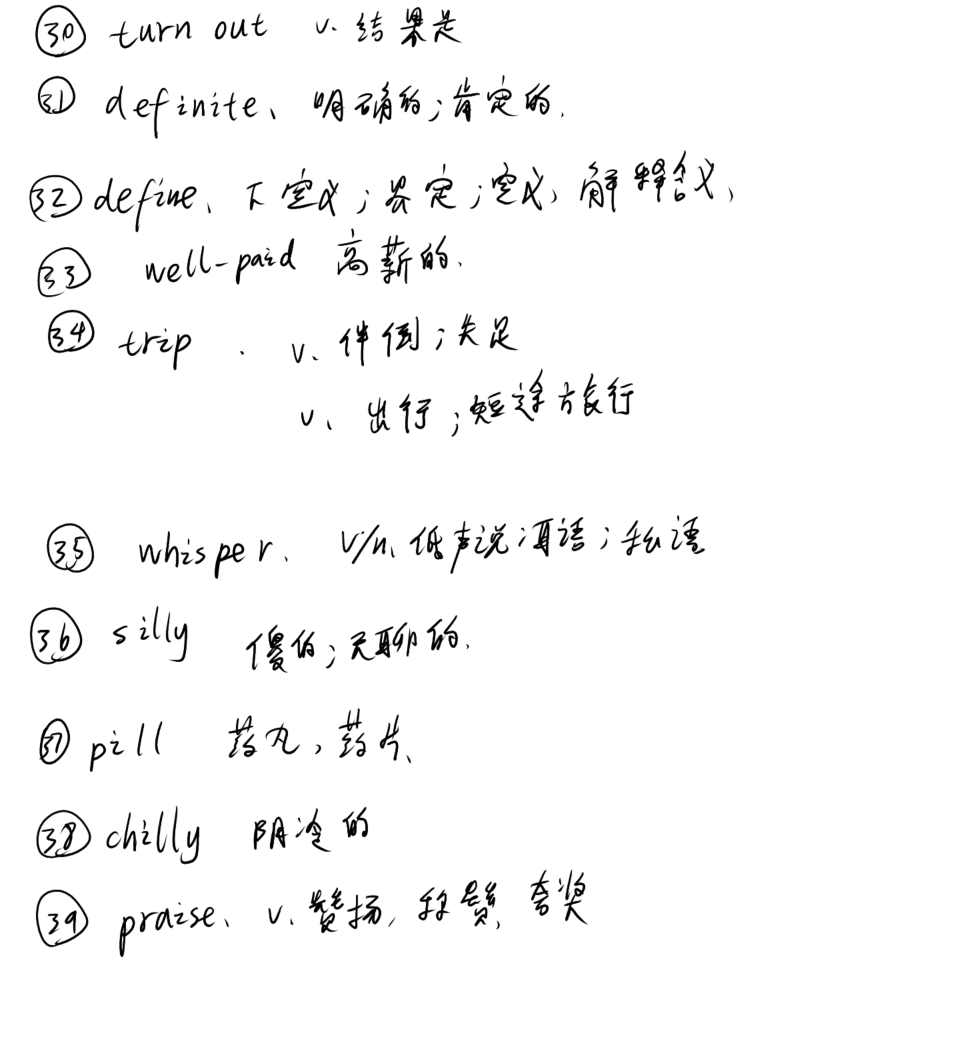 ㉚ turn out v. 结果是
㉛ definite、 明确的；肯定的.
㉜ define、下定义；界定；定义，解释含义、
㉝ well-paid 高薪的.
㉞ trip . v、伴倒；失足
v、出行；短途旅行
㉟ whisper. v/n、低声说；耳语；私语
㊱ silly 傻的；无聊的.
㊲ pill 药丸，药片、
㊳ chilly 阴冷的
㊴ praise、v. 赞扬，称赞，夸奖